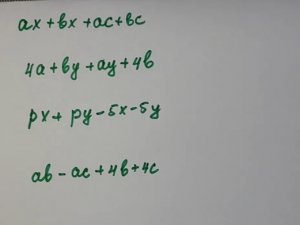 ax + bx + ac + bc
4a + by + ay + 4b
px + py - 5x - 5y
ab - ac + 4b + 4c